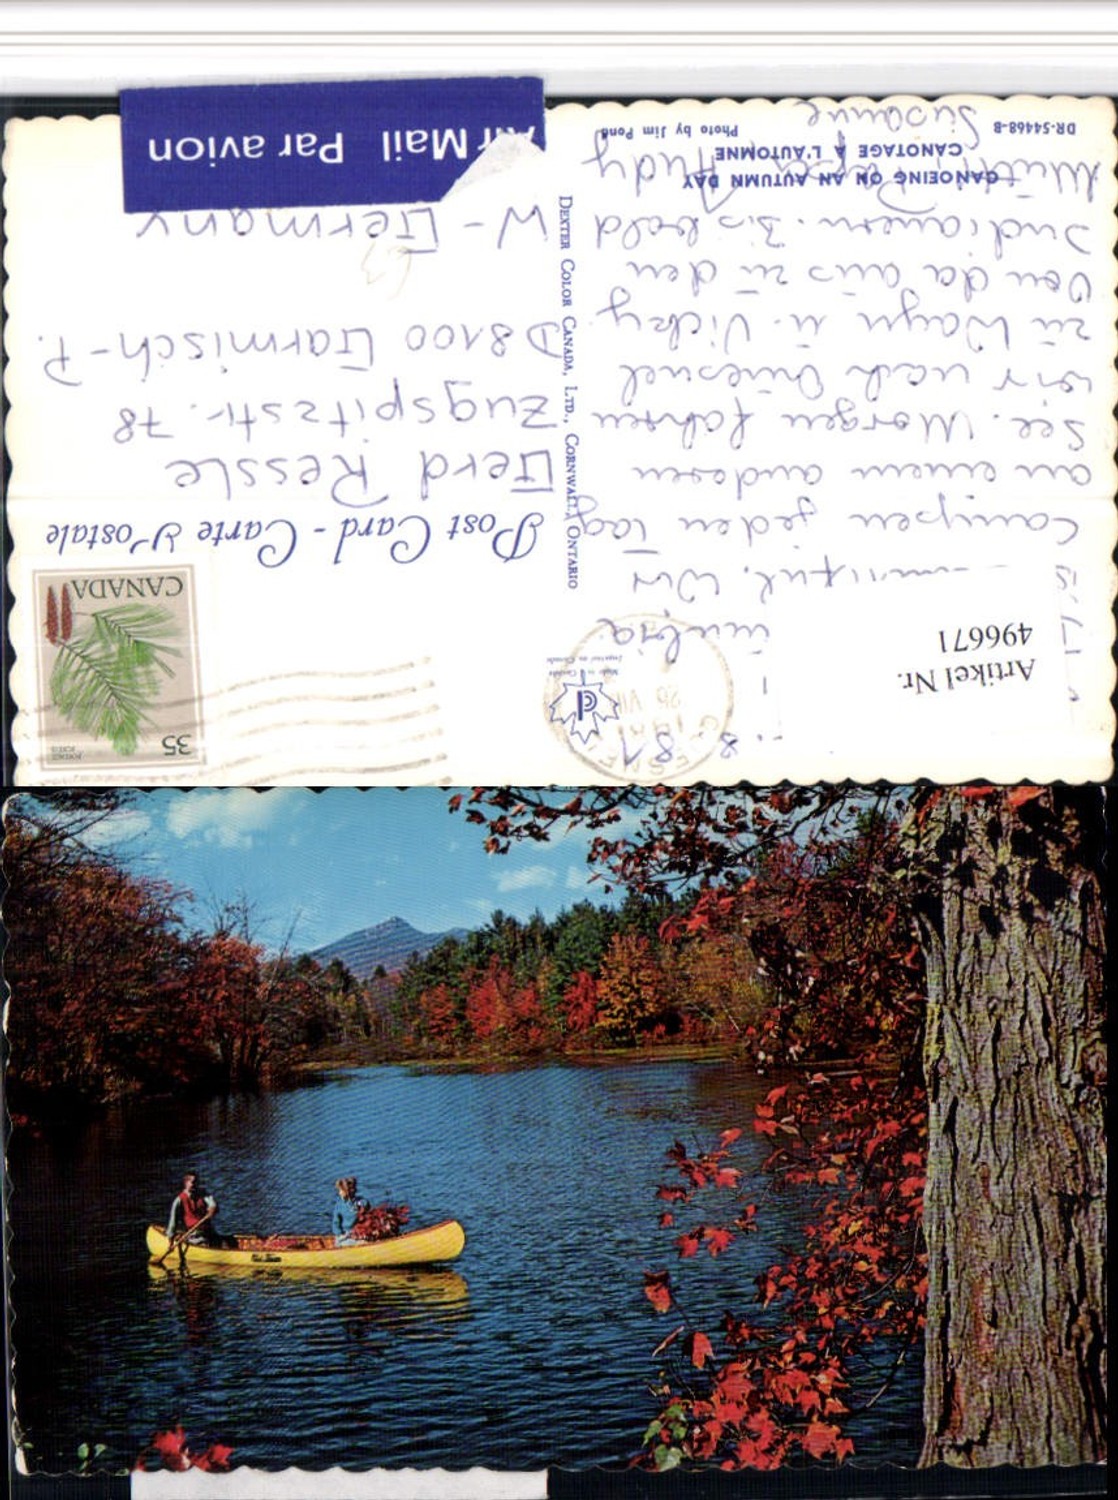 CANOEING ON AN AUTUMN DAY
CANOTAGE À L'AUTOMNE
DR-54468-B
Photo by Jim Pond
Artikel Nr.
496671
81
Wir
campen jeden Tag
an einem anderen
See. Morgen fahren
wir nach Quesnel
zu Wayn u. Vicky.
Von da aus zu den
Indianern. Bis bald
Rudy
Susanne
DEXTER COLOR CANADA, LTD., CORNWALL, ONTARIO
Made in Canada
CANADA
35
POSTAGE
POSTES
Post Card - Carte Postale
Gerd Ressle
Zugspitzstr. 78
D8100 Garmisch-P.
W-Germany
Air Mail Par avion